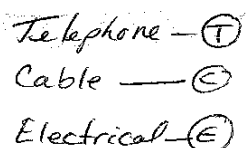 Telephone - T
Cable - C
Electrical - E